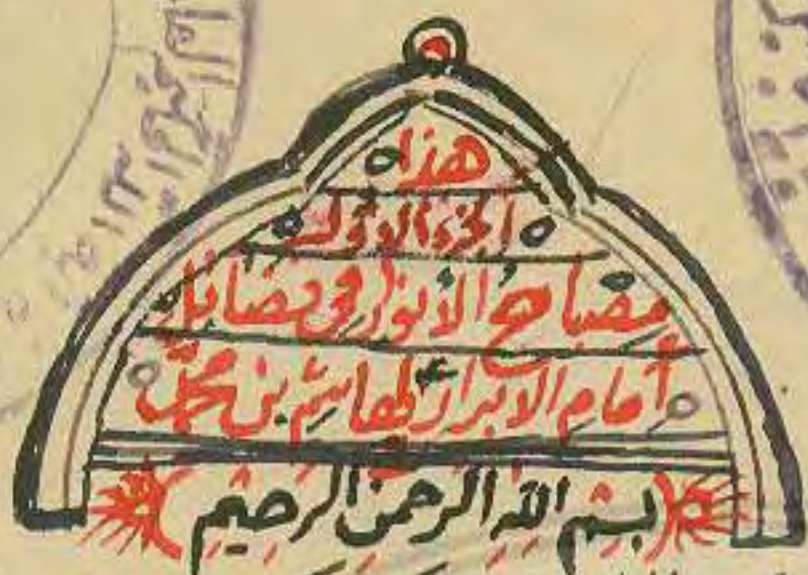 هذا
الجزء الاول
مصباح الأنوار في فضائل
أمام الابرار لهاشم بن محمد
بسم الله الرحمن الرحيم